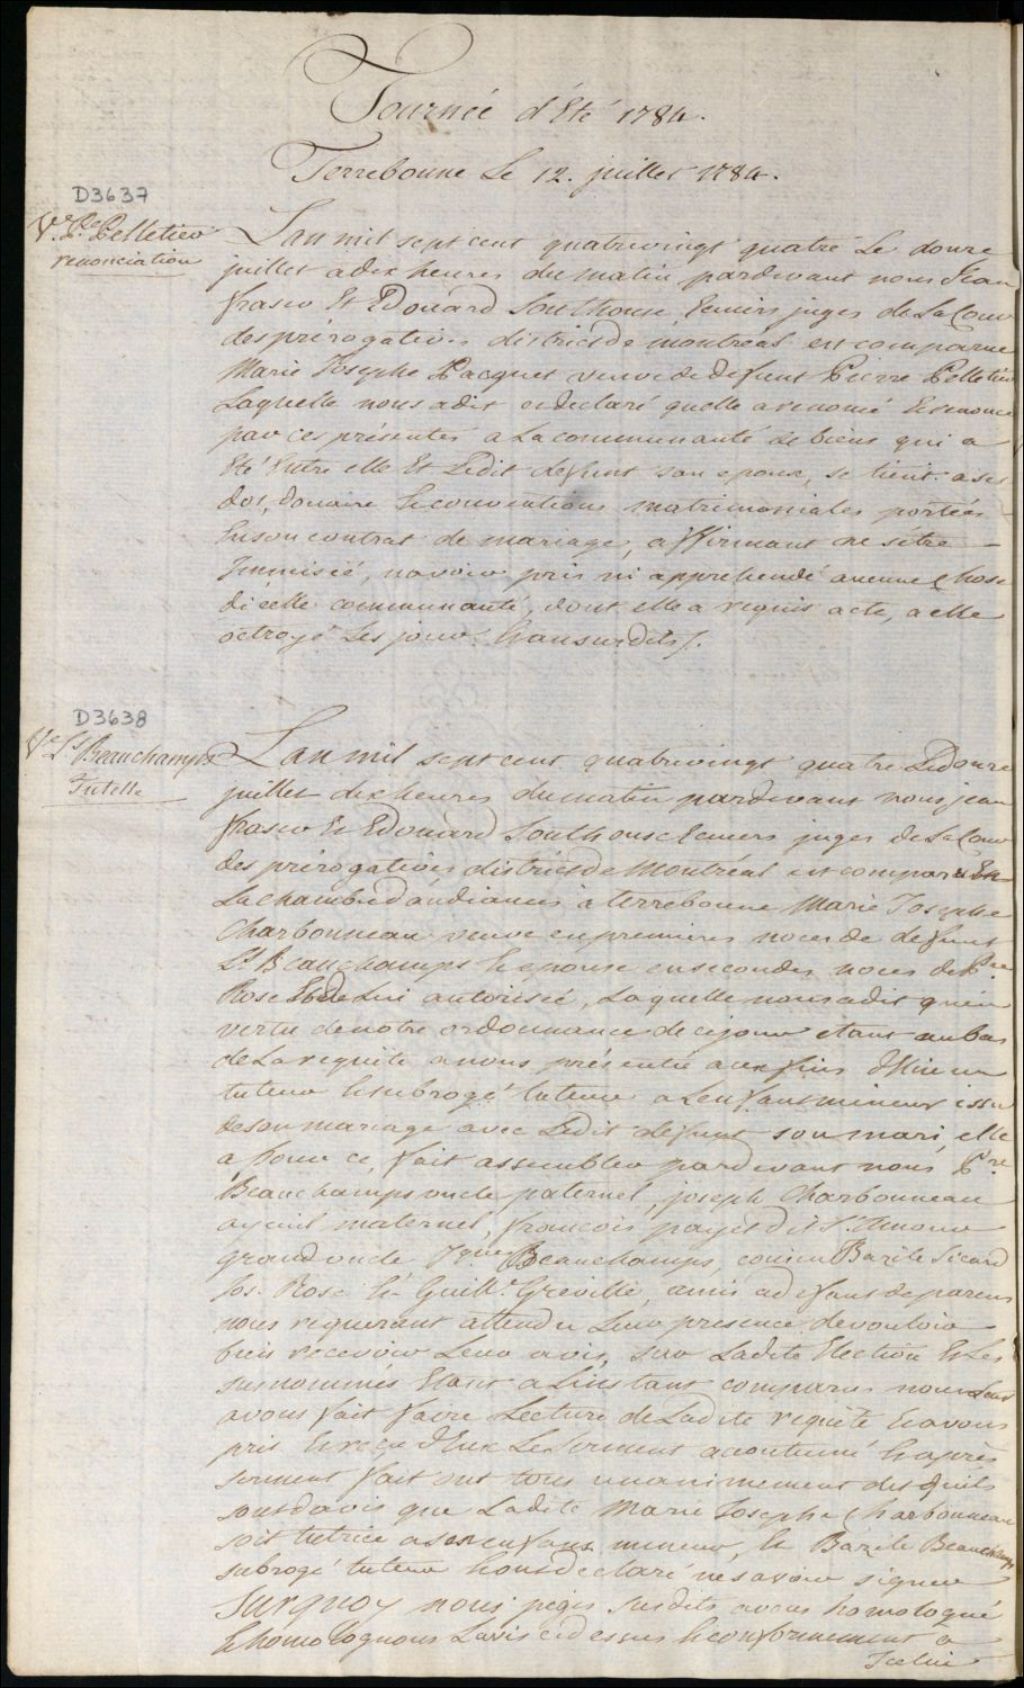 Tournée d'Été 1784.
Terrebonne Le 12. juillet 1784.
D3637
Ve. Pe. Pelletier
renonciation
Lan mil sept cent quatrevingt quatre Le douze
juillet a dix heures du matin pardevant nous Jean
fraser Et Edouard Southouse Ecuiers juges de La Cour
des prerogatives district de montreal est comparue
Marie Josephe Pacquet veuve de defunt Pierre Pelletier
Laquelle nous a dit et declaré quelle a renoncé Et renonce
par ces présentes a La communauté de biens qui a
Eté Entre elle Et Ledit defunt son epoux, se tient a ses
dot, Douaire Et conventions matrimoniales portées
En son contrat de mariage, affirmant ne s'être
Immisié, navoir pris ni apprehendé aucune Chose
dicelle communauté, dont elle a requis acte, a elle
octroyé Les jour Et an susdits /.
D3638
Ve. Ls. Beauchamps
Tutelle
Lan mil sept cent quatrevingt quatre Le douze
juillet dix heures du matin pardevant nous jean
fraser Et Edouard Southouse Ecuiers juges de La Cour
des prérogatives district de Montréal est comparu En
La chambre d'audiances a terrebonne Marie Josephe
Charbonneau veuve en premieres noces de defunt
Ls. Beauchamps Et epouse en secondes noces de Pre
Rose Et de Lui autorisée, Laquelle nous a dit qu'en
vertu de notre ordonnance de ce jour etant au bas
de La requête a nous présentée aux fins d'Elire un
tuteur Et subrogé tuteur a Lenfant mineur issu
de son mariage avec Ledit défunt son mari, elle
a pour ce, fait assembler pardevant nous Pre
Beauchamps oncle paternel, joseph Charbonneau
ayeul maternel, francois payet dit St. Amour
grand oncle Beauchamps, cousin Bazile Sicard
Jos. Rose Et Guille. Greville, amis a defaut de parens
nous requerant attendu Leur presence de vouloir
bien recevoir Leur avis, sur Ladite Election Et Les
susnommés Etant a Linstant comparus nous Leur
avons fait faire Lecture de Ladite requête Et avons
pris Et reçu d'Eux Le Serment acoutumé Et après
serment fait ont tous unanimement dit quils
sont davis que Ladite Marie Josephe Charbonneau
soit tutrice a son enfant mineur, Et Bazile Beauchamps
subrogé tuteur Et ont déclaré ne savoir signer
Surquoy nous juges susdits avons homologué
Et homologuons Lavis ci dessus Et conformement a
Icelui